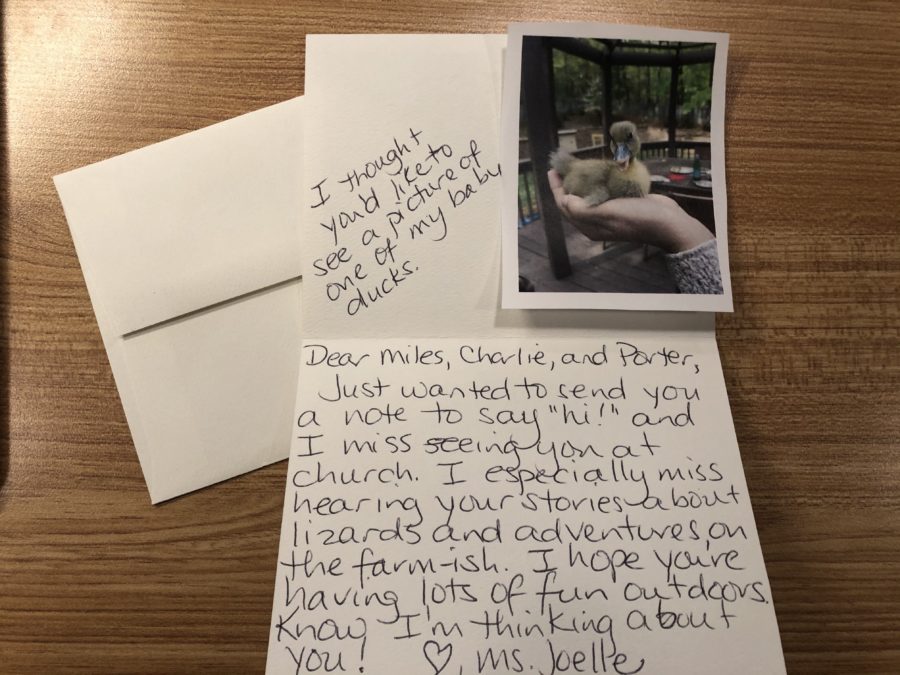 I thought
you'd like to
see a picture of
one of my baby
ducks.
Dear Miles, Charlie, and Porter,
Just wanted to send you
a note to say "hi!" and
I miss seeing you at
church. I especially miss
hearing your stories about
lizards and adventures on
the farm-ish. I hope you're
having lots of fun outdoors.
Know I'm thinking about
you! ♡, Ms. Joelle